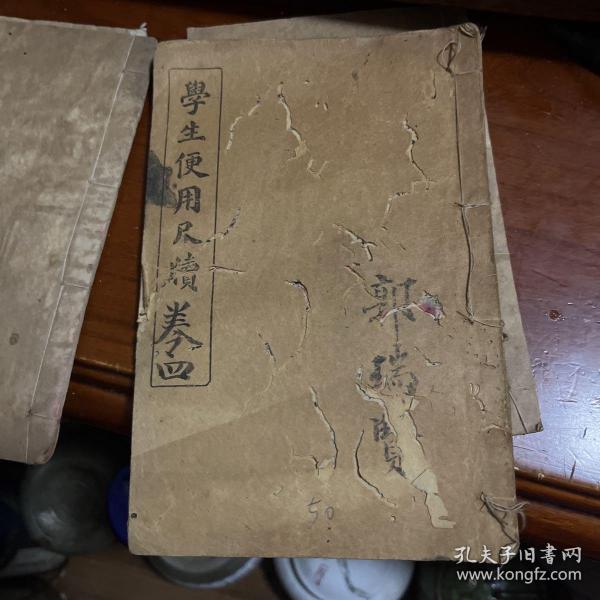 學生便用尺牘
卷四
郭瑞賢
50
孔夫子旧書网
www.kongfz.com